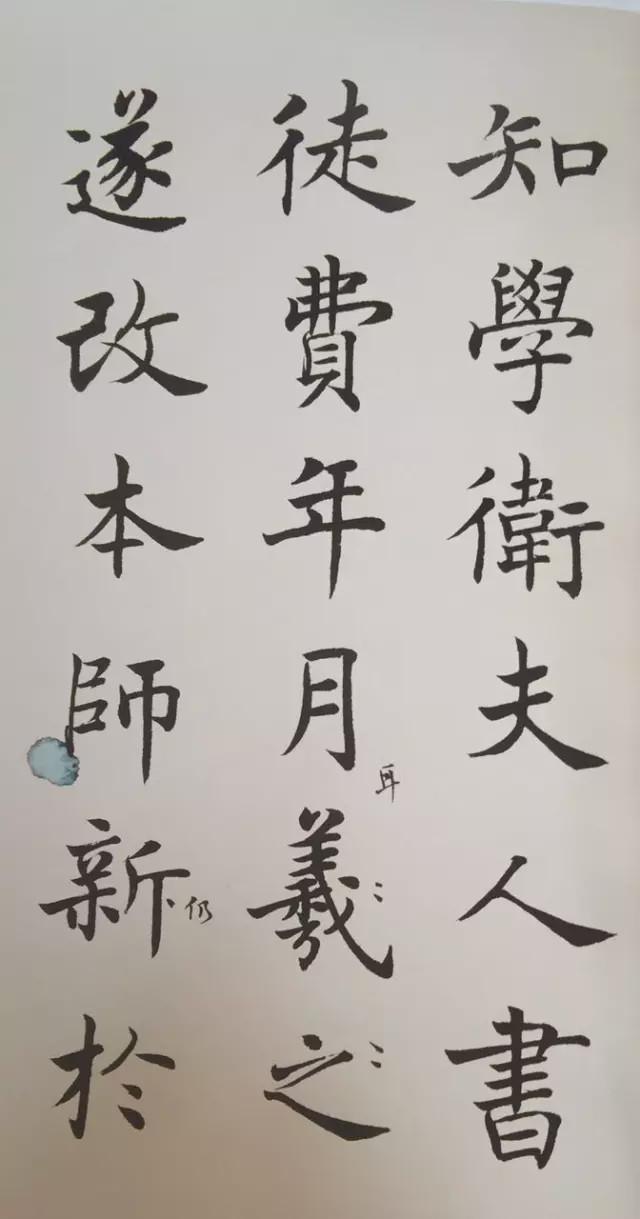 知學衛夫人書
徒費年月耳羲之
遂改本師新仍於